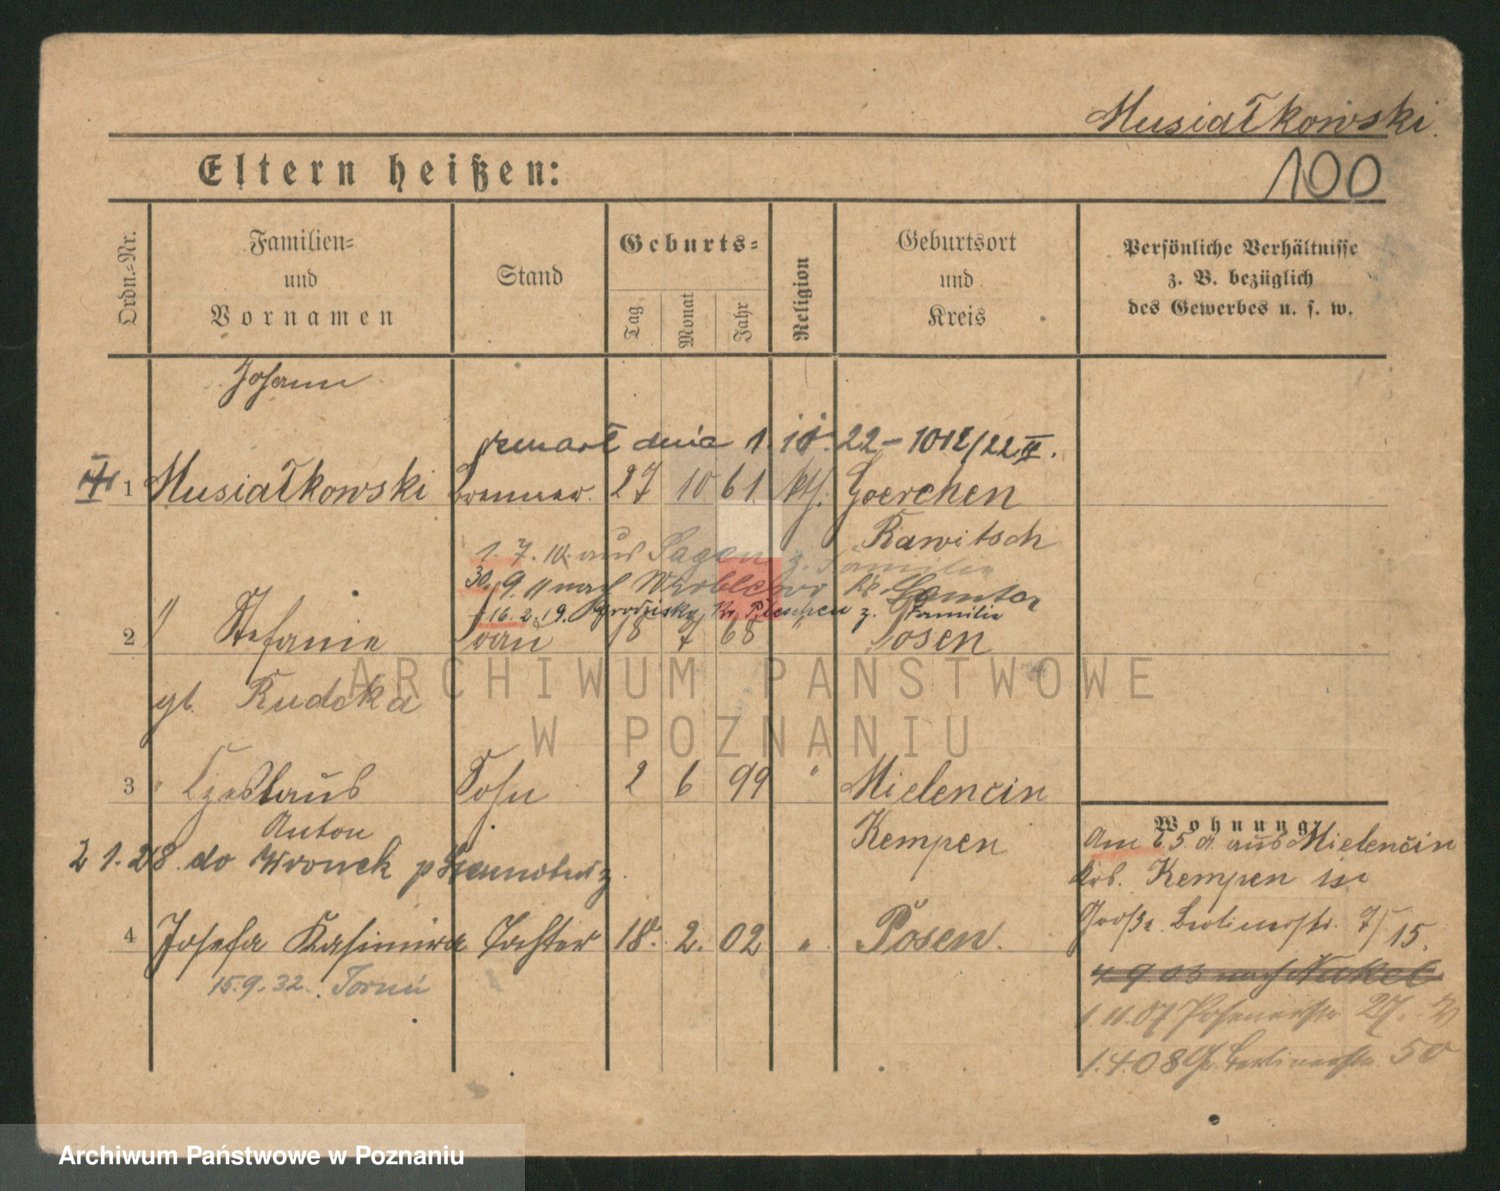 Musiałkowski.
Eltern heißen:
100
Ordn.-Nr.
Familien-
und
Vornamen
Stand
Geburts-
Tag
Monat
Jahr
Religion
Geburtsort
und
Kreis
Persönliche Verhältnisse
z. B. bezüglich
des Gewerbes u. s. w.
Johann
zmarł dnia 1. 10. 22 - 1012/22 II.
1 Musiałkowski Brenner. 27 10 61. kth. Goerchen
Rawitsch
1. 7. 10. aus Sagen z. Familie
30. 9. 11 nach Wroblewo Kr. Samter
16. 2. 19. Grodzisko Kr. Pleschen z. Familie
2 " Stefanie Frau 18 7 68 " Posen
gb. Rudzka
3 " Czeslaus Sohn 2 6 99 " Mielencin
Anton
Kempen
2 1. 28. do Wronek p
4 Josefa Kasimira Tochter 18. 2. 02 " Posen.
15. 9. 32. Toruń
Wohnung
Am 5. aus Mielenčin
Krs. Kempen in
Große Berlinerstr. 7/15.
4 9. 03 nach Nakel
1. 11. 07 Posenerstr 27.
1. 4. 08 Gr. Berlinerstr. 50
ARCHIWUM PAŃSTWOWE
W POZNANIU
Archiwum Państwowe w Poznaniu